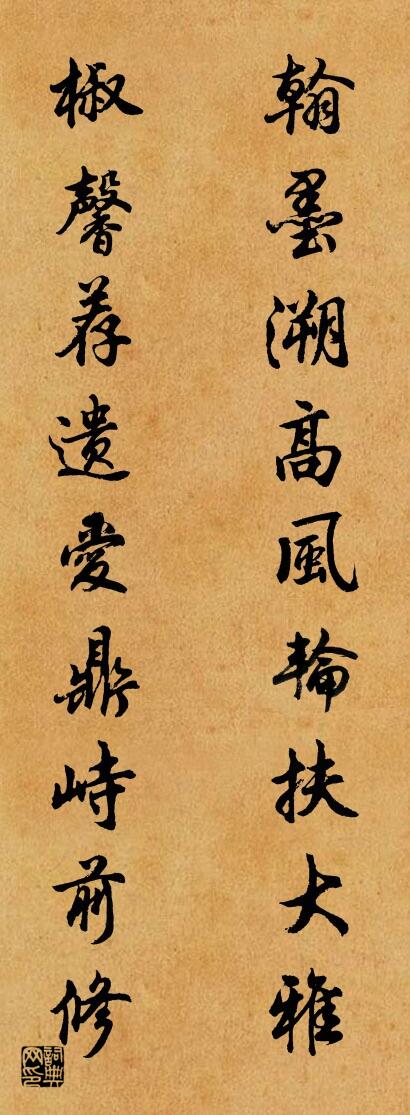 翰墨溯高風輪扶大雅
椒馨荐遗愛鼎峙前修
詞典網印